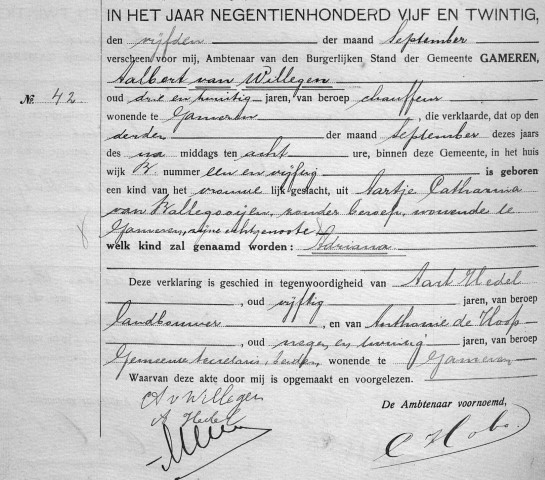 IN HET JAAR NEGENTIENHONDERD VIJF EN TWINTIG,
den vijfden der maand September
verscheen voor mij, Ambtenaar van den Burgerlijken Stand der Gemeente GAMEREN,
Aalbert van Willegen
No. 42
oud drie en twintig jaren, van beroep chauffeur
wonende te Gameren, die verklaarde, dat op den
derden der maand September dezes jaars
des na middags ten acht ure, binnen deze Gemeente, in het huis
wijk B. nummer een en vijftig is geboren
een kind van het vrouwelijk geslacht, uit Aartje Catharina
van Ballegooijen, zonder beroep, wonende te
Gameren, zijne echtgenoote
welk kind zal genaamd worden: Adriana
Deze verklaring is geschied in tegenwoordigheid van Aart Hedel
, oud vijftig jaren, van beroep
landbouwer, en van Anthonie de Hoop
, oud negen en twintig jaren, van beroep
Gemeente Secretaris, beiden wonende te Gameren
Waarvan deze akte door mij is opgemaakt en voorgelezen.
A v Willegen
A Hedel
De Ambtenaar voornoemd,